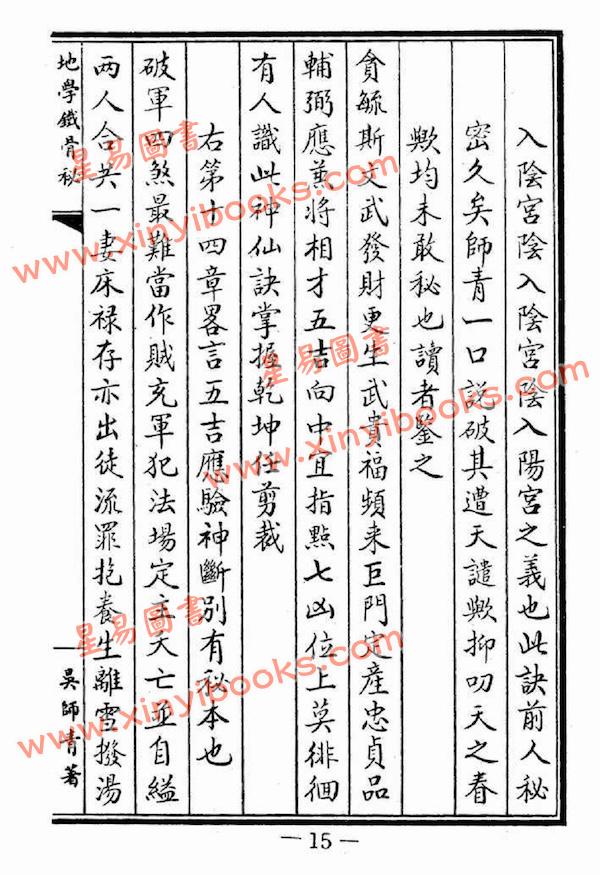 入陰宮陰入陰宮陰入陽宮之義也此訣前人秘
密久矣師青一口説破其遭天譴歟抑叨天之眷
歟均未敢秘也讀者鑒之
貪毓斯文武發財更生武貴福頻来巨門定產忠貞品
輔弼應蒹將相才五吉向中宜指點七凶位上莫徘徊
有人識此神仙訣掌握乾坤任剪裁
右第十四章畧言五吉應驗神斷別有秘本也
破軍四煞最難當作賊充軍犯法場定主夭亡並自縊
两人合共一妻床禄存亦出徒流罪抱養生離雪撥湯
地學鐵骨秘
吳師青著
— 15 —
星易圖書
www.xinyibooks.com
星易圖書
www.xinyibooks.com
星易圖書
www.xinyibooks.com